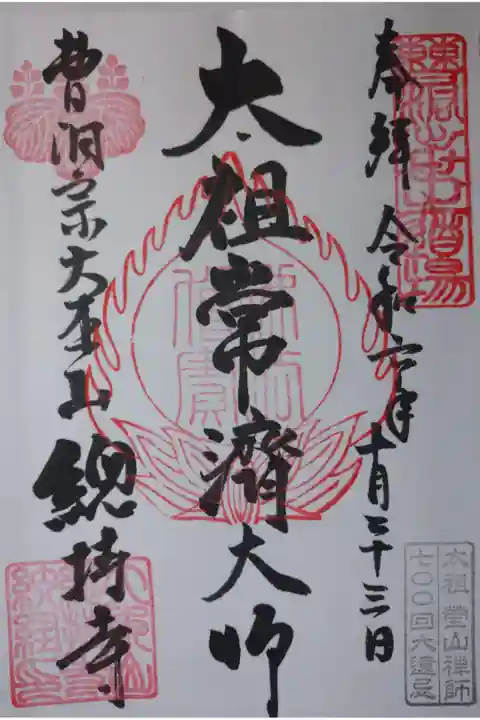 奉拜 令和六年十月二十三日
太祖常濟大師
曹洞宗大本山總持寺
太祖瑩山禅師
七〇〇回大遠忌